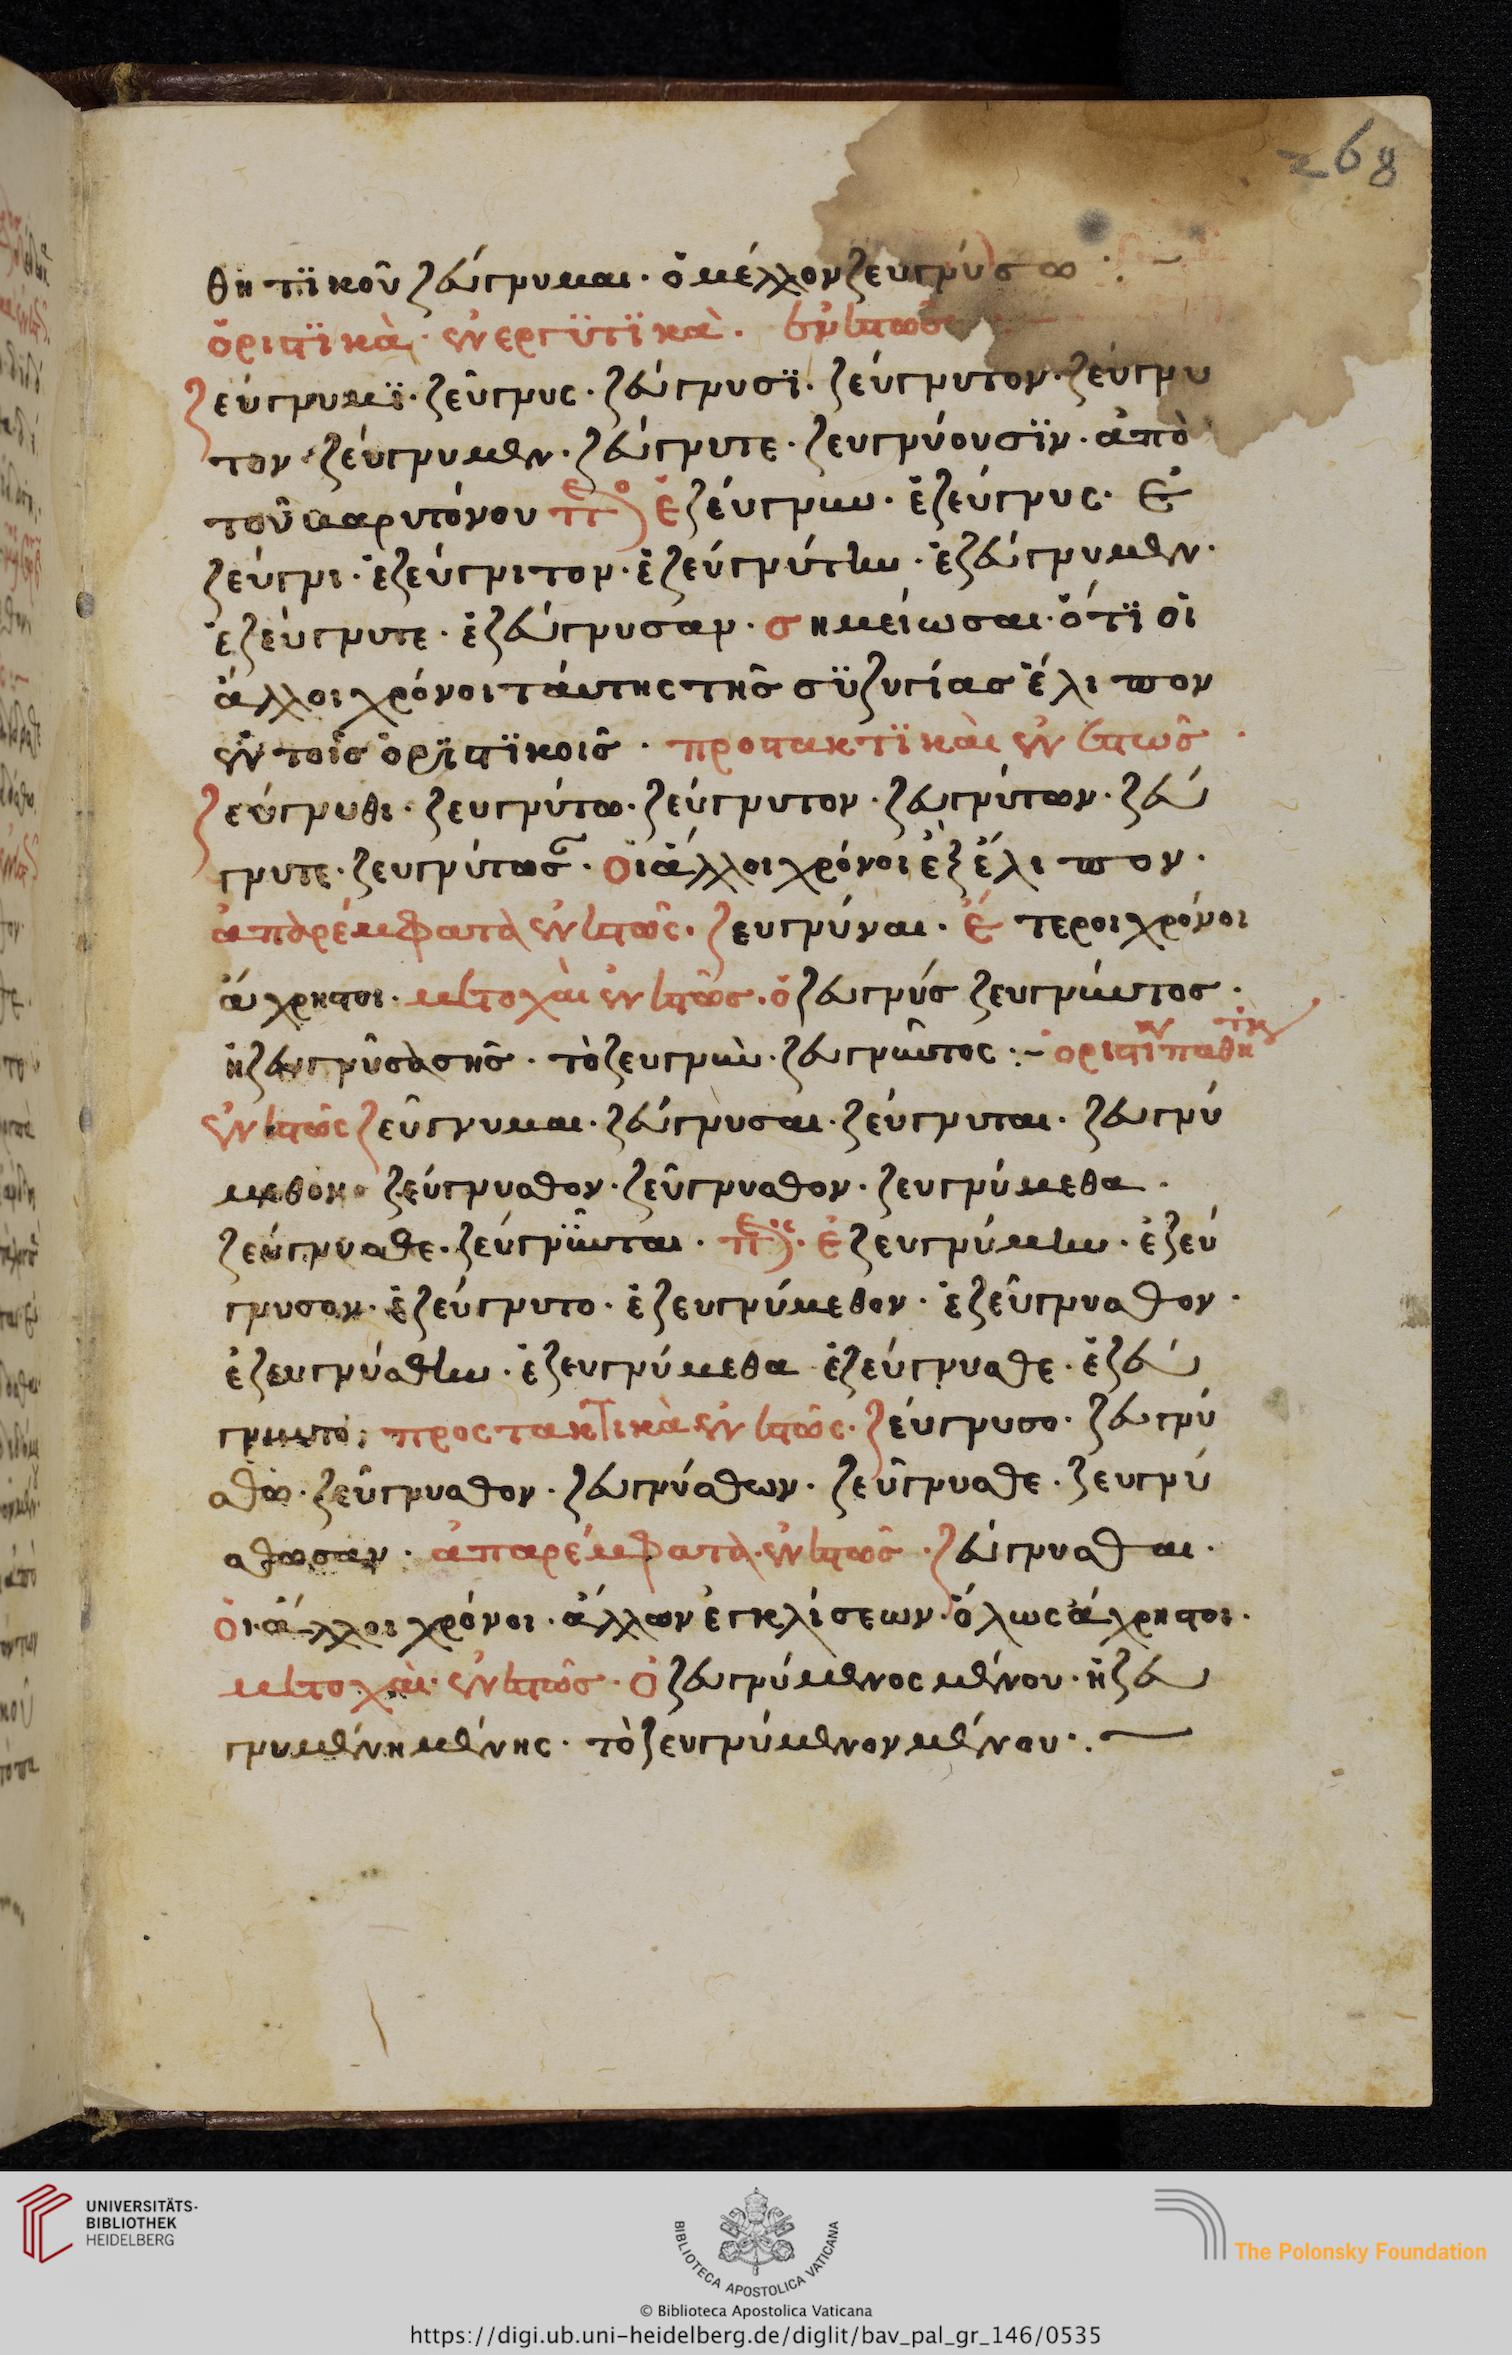 268
θητϊκοῦ ζεύγνυμαι· ὁ μέλλον ζευγνύσω :~
ὁριστϊκὰ· ἐνεργϋτϊκὰ· ἐνεστῶσ
ζεύγνυμϊ· ζεῦγνυς· ζεύγνυσϊ· ζεύγνυτον· ζεύγνυ
τον· ζεύγνυμεν· ζεύγνυτε· ζευγνύουσϊν· ἀπὸ
τοῦ βαρυτόνου πε)ο ἐζεύγνυν· ἐζεύγνυς· ἐ
ζεύγνι· ἐζεύγνιτον· ἐζεύγνύτην· ἐζεύγνυμεν·
ἐζεύγνυτε· ἐζεύγνυσαν· σημείωσαι· ὅτϊ οἱ
ἄλλοι χρόνοι τάυτης τῆσ σϋζυγίασ ἔλιπον
ἐν τοῖσ ὁρϊστϊκοῖσ · προστακτϊκὰι ἐνεστῶσ ·
ζεύγνυθι· ζευγνύτω· ζεύγνυτον· ζευγνύτων· ζεύ
γνυτε· ζευγνύτωσαν· οἱ ἄλλοι χρόνοι ἐξέλιπον·
ἀπαρέμφατα ἐνεστῶς· ζευγνύναι· ἕτεροι χρόνοι
ἄχρηστοι· μετοχὰι ἐνεστῶσ· ὁ ζευγνύσ ζευγνύντοσ·
ἡ ζευγνῦσα σησ· τὸ ζευγνὺν· ζευγνῦντος :~ ὁριστικ παθητικ
ἐνεστῶς ζεῦγνυμαι· ζεύγνυσαι· ζεύγνυται· ζευγνύ
μεθον· ζεύγνυσθον· ζεῦγνυσθον· ζευγνύμεθα·
ζεύγνυσθε· ζεύγνϋνται· πε)ος· ἐζευγνύμην· ἐζεύ
γνυσον· ἐζεύγνυτο· ἐζευγνύμεθον· ἐζεῦγνυσθον·
ἐζευγνύσθην· ἐζευγνύμεθα ἐζεύγνυσθε· ἐζεύ
γνυντο· προςτακτικὰ ἐνεστῶς· ζεύγνυσο· ζευγνύ
σθω· ζεῦγνυσθον· ζευγνύσθων· ζεῦγνυσθε· ζευγνύ
σθωσαν· ἀπαρέμφατα· ἐνεστῶσ· ζεύγνυσθαι·
ὁι ἄλλοι χρόνοι· ἄλλων ἐγκλίσεων· ὅλως ἄχρηστοι·
μετοχὰι· ἐνεστῶσ· ὁ ζευγνύμενος μένου· ἡ ζευ
γνυμένη μένης· τὸ ζευγνύμενον μένου :~
UNIVERSITÄTS-
BIBLIOTHEK
HEIDELBERG
BIBLIOTECA APOSTOLICA VATICANA
The Polonsky Foundation
© Biblioteca Apostolica Vaticana
https://digi.ub.uni-heidelberg.de/diglit/bav_pal_gr_146/0535